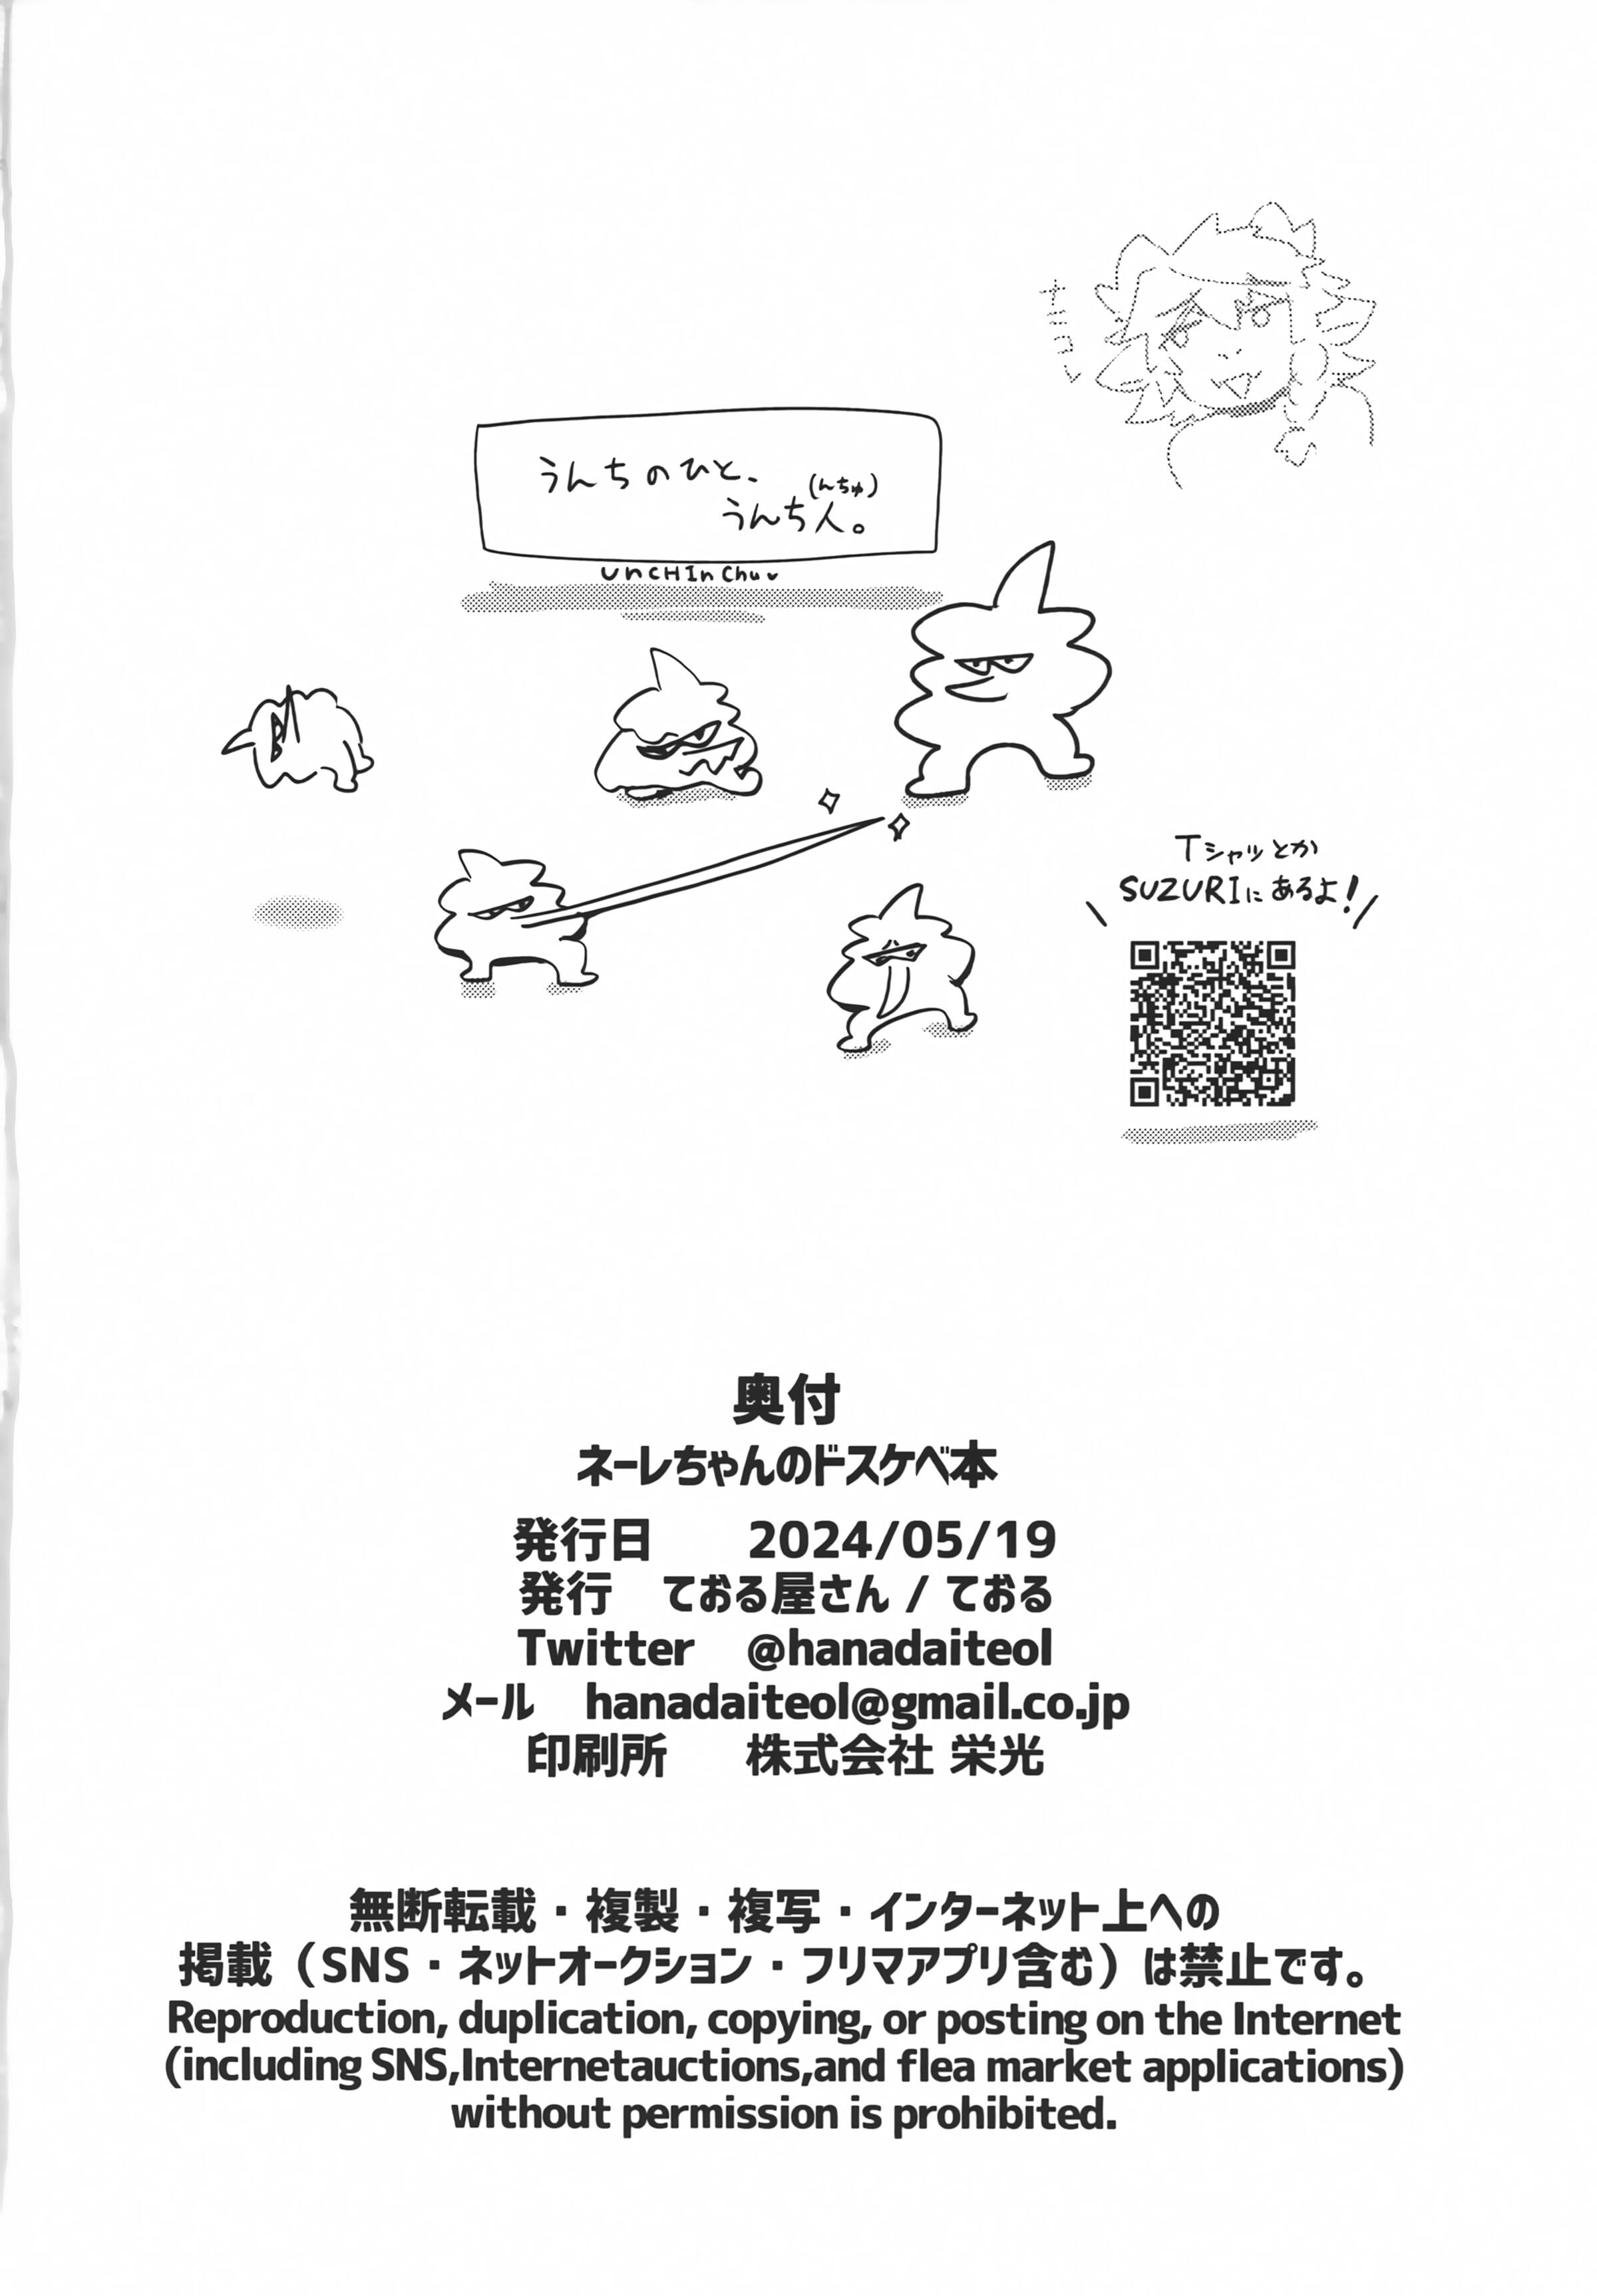 ナニコレ
うんちのひと、
(んちゅ)
うんち人。
UnCHInChu
Tシャツとか
SUZURIにあるよ!
奥付
ネーレちゃんのドスケベ本
発行日 2024/05/19
発行 ておる屋さん / ておる
Twitter @hanadaiteol
メール hanadaiteol@gmail.co.jp
印刷所 株式会社 栄光
無断転載・複製・複写・インターネット上への
掲載（SNS・ネットオークション・フリマアプリ含む）は禁止です。
Reproduction, duplication, copying, or posting on the Internet
(including SNS,Internetauctions,and flea market applications)
without permission is prohibited.